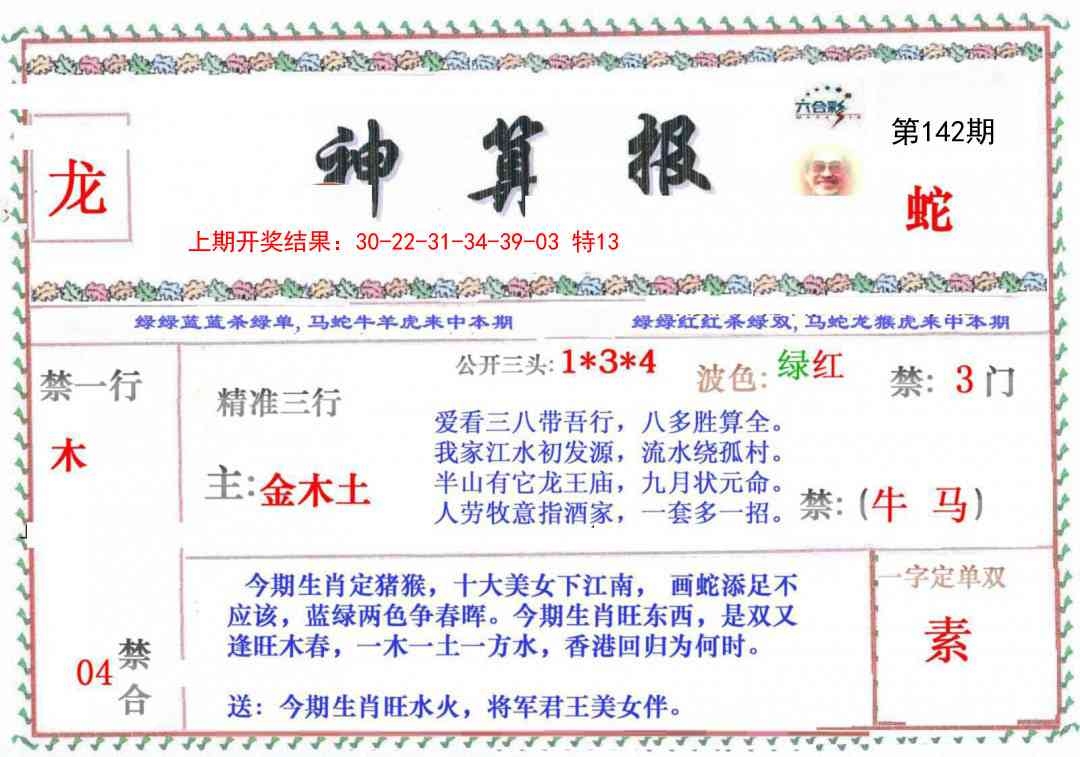 六合彩
第142期
龙
神算报
蛇
上期开奖结果：30-22-31-34-39-03 特13
绿绿蓝蓝杀绿单，马蛇牛羊虎来中本期
绿绿红红杀绿双，马蛇龙猴虎来中本期
禁一行
木
精准三行
主:金木土
公开三头:1*3*4
波色:绿红
禁: 3门
爱看三八带吾行，八多胜算全。
我家江水初发源，流水绕孤村。
半山有它龙王庙，九月状元命。
人劳牧意指酒家，一套多一招。
禁:(牛 马)
今期生肖定猪猴，十大美女下江南， 画蛇添足不
应该，蓝绿两色争春晖。今期生肖旺东西，是双又
逢旺木春，一木一土一方水，香港回归为何时。
送：今期生肖旺水火，将军君王美女伴。
04禁合
一字定单双
素